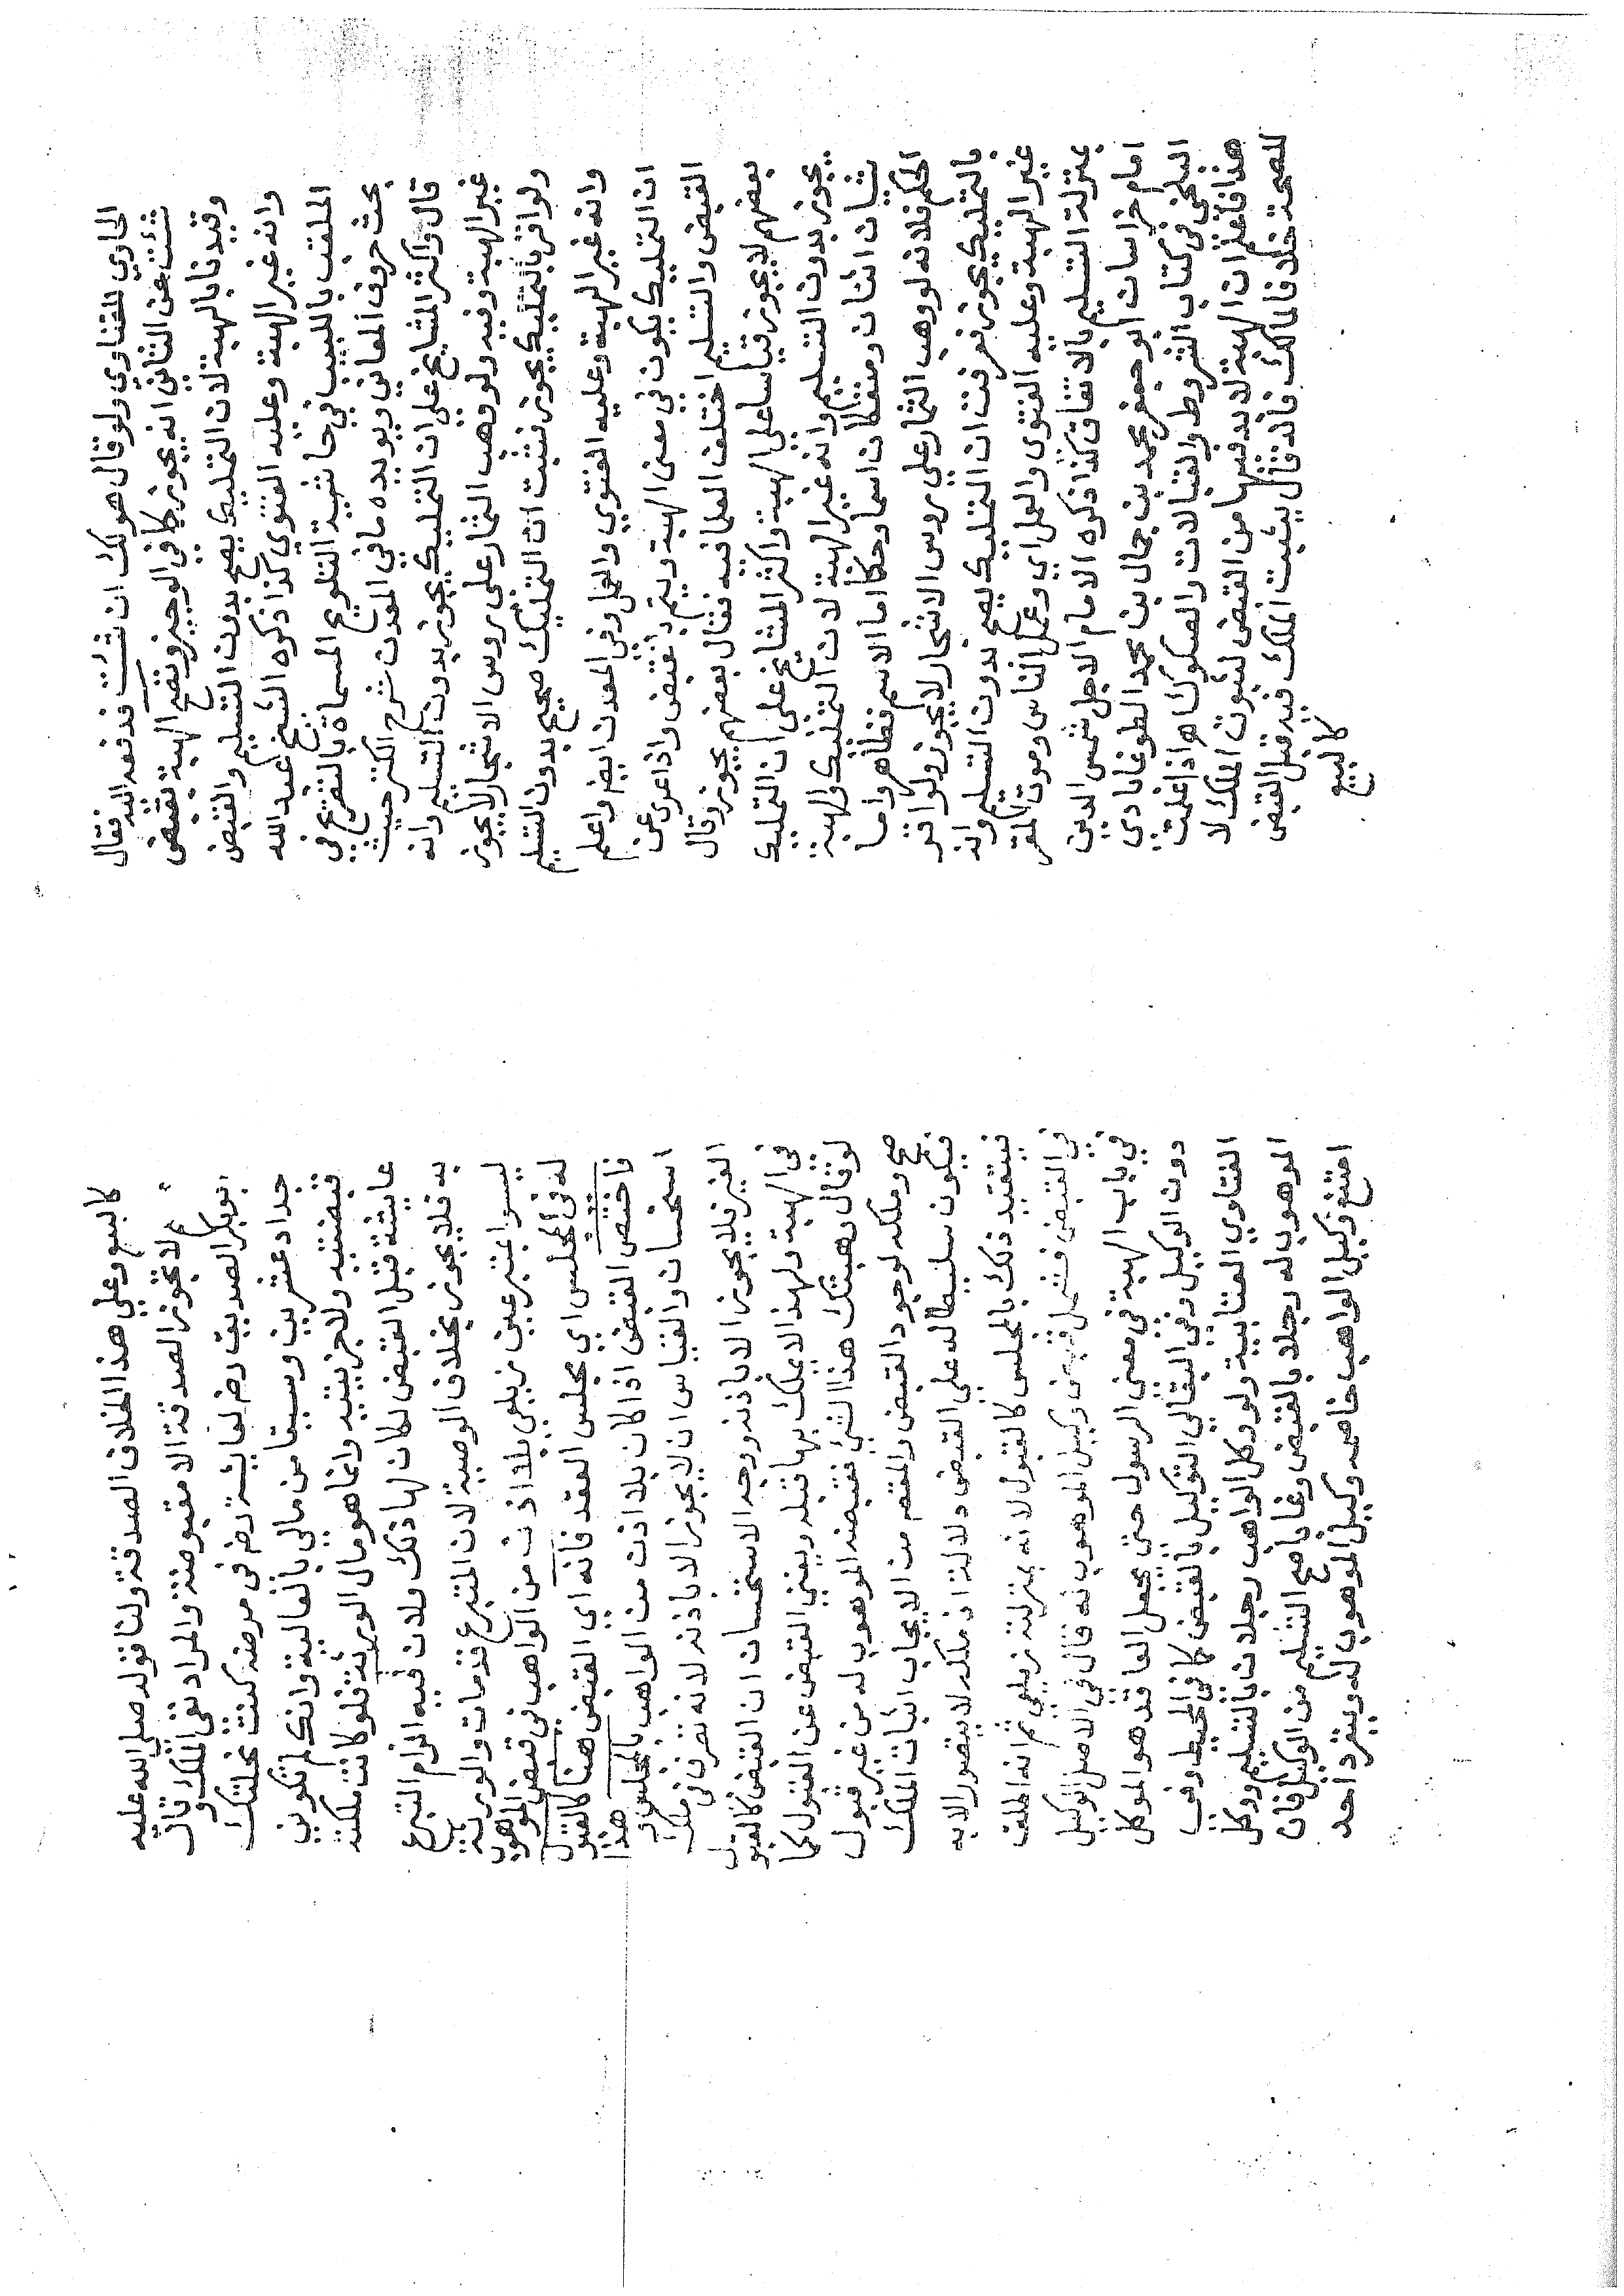 الحاوي للفتاوي ولو قال هو لك ان شئت فدفعه اليه فقال
شئت عن الثاني انه يجوز كما في الوجيز وتصح الهبة بقبض
وقيدنا بالهبة لان التمليك يصح بدون التسليم والقبض
وانه غير الهبة وعليه الفتوي كذا ذكره الشيخ عبد الله
الملقب باللبيبـاني في حاشية التلويح المسماة بالتفريع في
بحث حروف المعاني ويويده ما في المعدن شرح الكنز حيث
قال واكثر المشايخ علي ان التمليك يجوز بدون التسليم وانه
غير الهبة وفيه ولو وهب الثمار على روس الاشجار لا يجوز
ولو اقر بالتمليك يجوز فثبت ان التمليك صحيح بدون التسليم
وانه غير الهبة وعليه الفتوي والعمل وفي المعدن ايض واعلم
ان التمليك يكون في معنى الهبة ويتم بالقبض واذا عري عن
القبض والتسليم اختلف العلما فيه فقال بعضهم يجوز وقال
بعضهم لا يجوز قياسا علي الهبة واكثر المشايخ على ان التمليك
يجوز بدون التسليم وانه غير الهبة لان التمليك والهبة
شيان اثنان ومتفقان اسما وحكما اما الاسم فظاهر واما
الحكم فلانه لو وهب الثمار علي روس الاشجار لا يجوز ولو اقر
بالتمليك يجوز فعرفت ان التمليك يصح بدون التسليم وانه
غير الهبة وعليه الفتوى والعمل اي وعمل الناس وموت المقر
بمنزلة التسليم بالاتفاق كذا ذكره الامام الاجل شمس الدين
امام خراسان ابو جعفر محمد بن جمال بن محمد الطوغابادي
البلخي في كتاب الشروط والقبالات والصكوك اهـ اذا علمت
هذا فاعلم ان الهبة لا بد فيها من القبض لثبوت الملك لا
للصحة خلافا لمالك فانه قال يثبت الملك فيه قبل القبض
كالبيع
كالبيع وعلي هذا الخلاف الصدقة ولنا قوله صلي الله عليه
لا تجوز الصدقة الا مقبوضة والمراد نفي الملك وقال
ابو بكر الصديق رض لعايشة رض في مرضه كنت نحلتك
جداد عشرين وسقا من مالي بالعالية وانك لم تكوني
قبضتيه ولا حزيتيه وانما هو مال الورثة فلو كانت ملكته
عايشة قبل القبض لكان لها ذلك ولان فيه الزام التبرع
به فلا يجوز بخلاف الوصية لان المتبرع قد مات والورثة
ليسوا متبرعين زيلعي بلا اذن من الواهب في قبض الموهوب
له في المجلس اي مجلس العقد فانه اي القبض هنا كالقبول
فاختص القبض اذا كان بلا اذن من الواهب بالمجلس وهذا
استحسان والقياس ان لا يجوز الا باذنه لانه تصرف في ملك
الغير فلا يجوز الا باذنه ووجه الاستحسان ان القبض كالقبول
في الهبة ولهذا لا يملك بها قبله ويغني القبض عن القبول كما
لو قال وهبتك هذا الشي فقبضه الموهوب له من غير قبول
صح وملكه لوجود القبض والمقصد من الايجاب اثبات الملك
فيكون تسليطا له علي القبض دلالة اذ ملكه لا يتصور الا به
فيتقيد ذلك بالمجلس كالقبول لانه بمنزلته زيلعي ثم انه اطلق
في القبض فشمل قبض وكيل الموهوب له قال في الاصل الوكيل
في باب الهبة في معنى الرسول حتي يجعل العاقد هو الموكل
دون الوكيل وفي البقالي التوكيل بالقبض كما في المحيط وفي
الفتاوي العتابية ولو وكل الواهب رجلا بالتسليم ووكل
الموهوب له رجلا بالقبض وغابا صح التسليم من الوكيل فان
امتنع وكيل الواهب خاصمه وكيل الموهوب له وينفرد احد